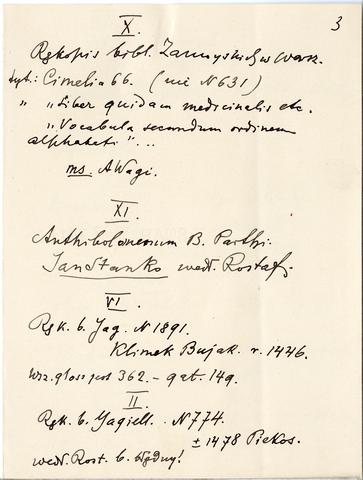 3
X.
Rękopis bibl. Zamoyskich w Warsz.
syt: Cimelia 66. (nie N 631)
" „Liber quidam medicinalis etc.
„Vocabula secundum ordinem
alphabeti" ...
ms. A Wagi.
XI.
B. Parthi.
Jan Stanko wedł. Rostaf.
VI.
Rgk. b. Jag. N 1891.
Klimek Bujak. r. 1446.
glos pol 362. – gat. 149.
II.
Rgk. b. Jagiell. N 774.
± 1478 Piekos.
wedł. Rost. b. błędny!